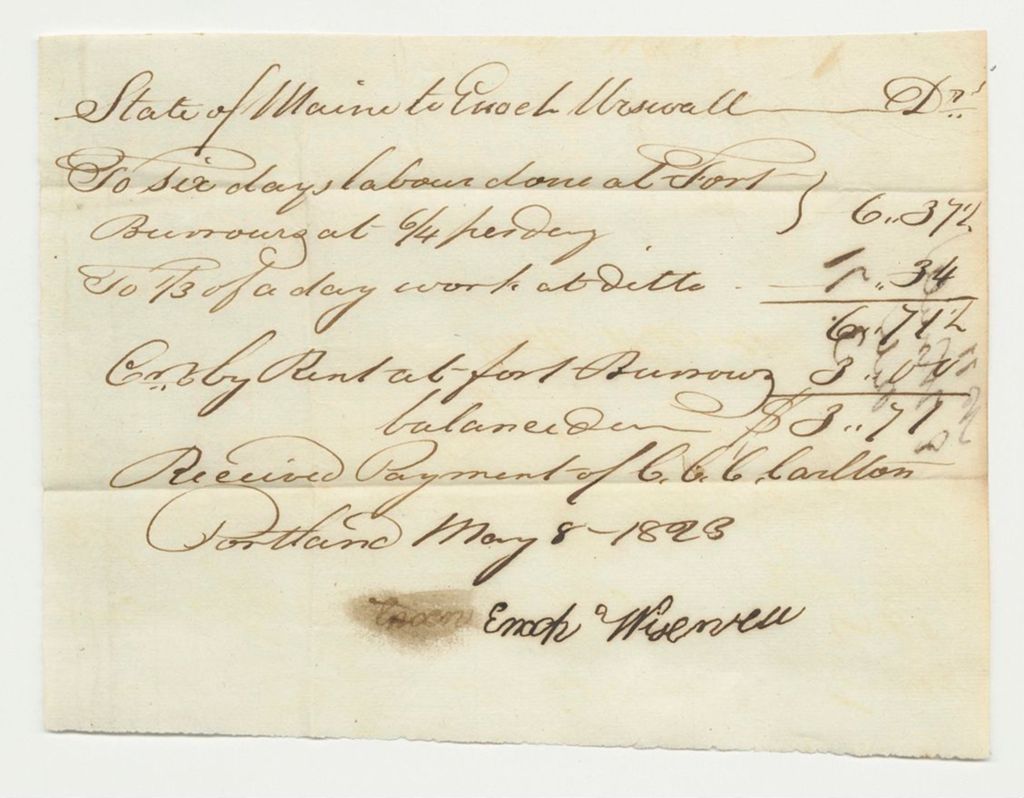 State of Maine to Enoch Urswall Dr.
To Six days labour done at Fort
Burrows at 6/4 per day 6..37½
To 1/3 of a day work at ditto - ..34
6..71½
Cr. by Rent at fort Burrows 3..00
balance due $3..71
Received Payment of C. C. C. Carlton
Portland May 8 - 1823
Enoch Wiswell